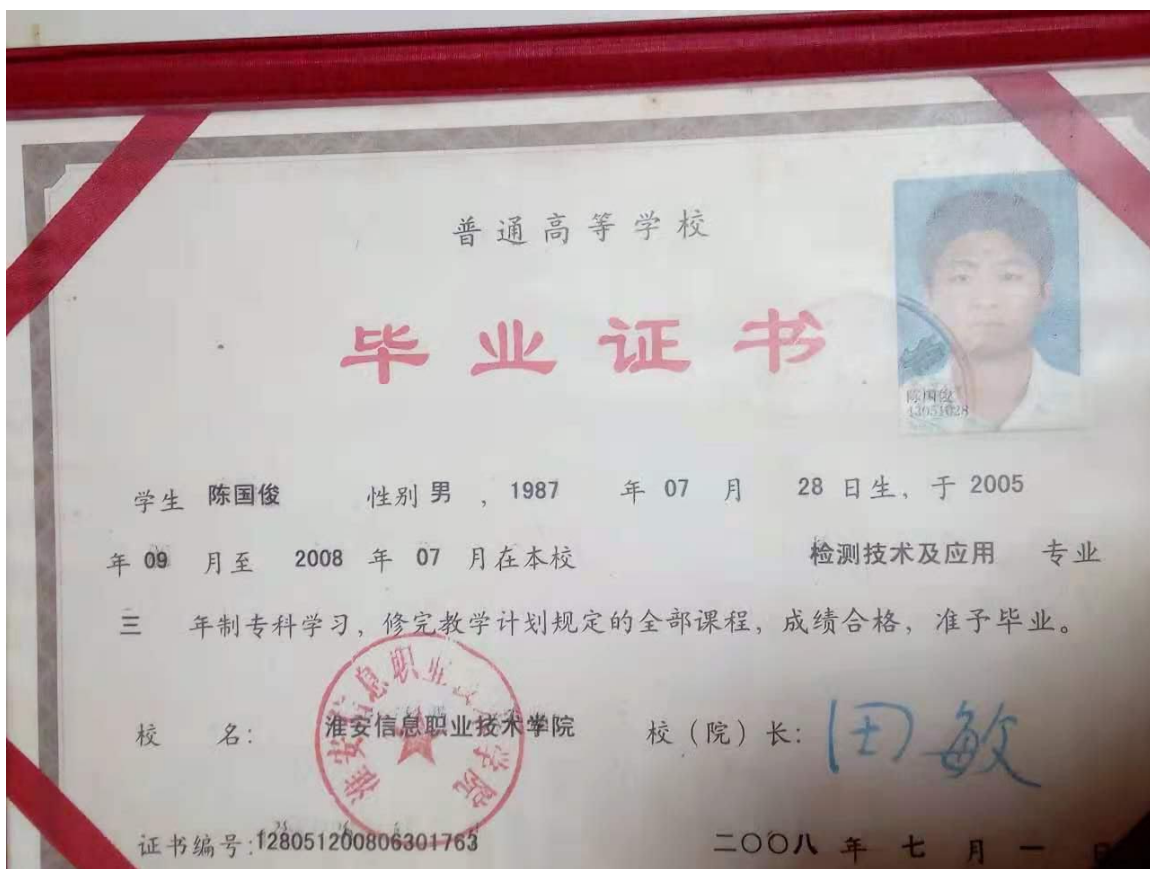 普通高等学校
毕业证书
陈国俊
43051028
学生 陈国俊 性别 男 ，1987 年 07 月 28 日生，于 2005
年 09 月至 2008 年 07 月在本校 检测技术及应用 专业
三 年制专科学习，修完教学计划规定的全部课程，成绩合格，准予毕业。
校 名： 淮安信息职业技术学院 校（院）长：田敏
淮安信息职业技术学院
证书编号：128051200806301763 二〇〇八 年 七 月 一 日